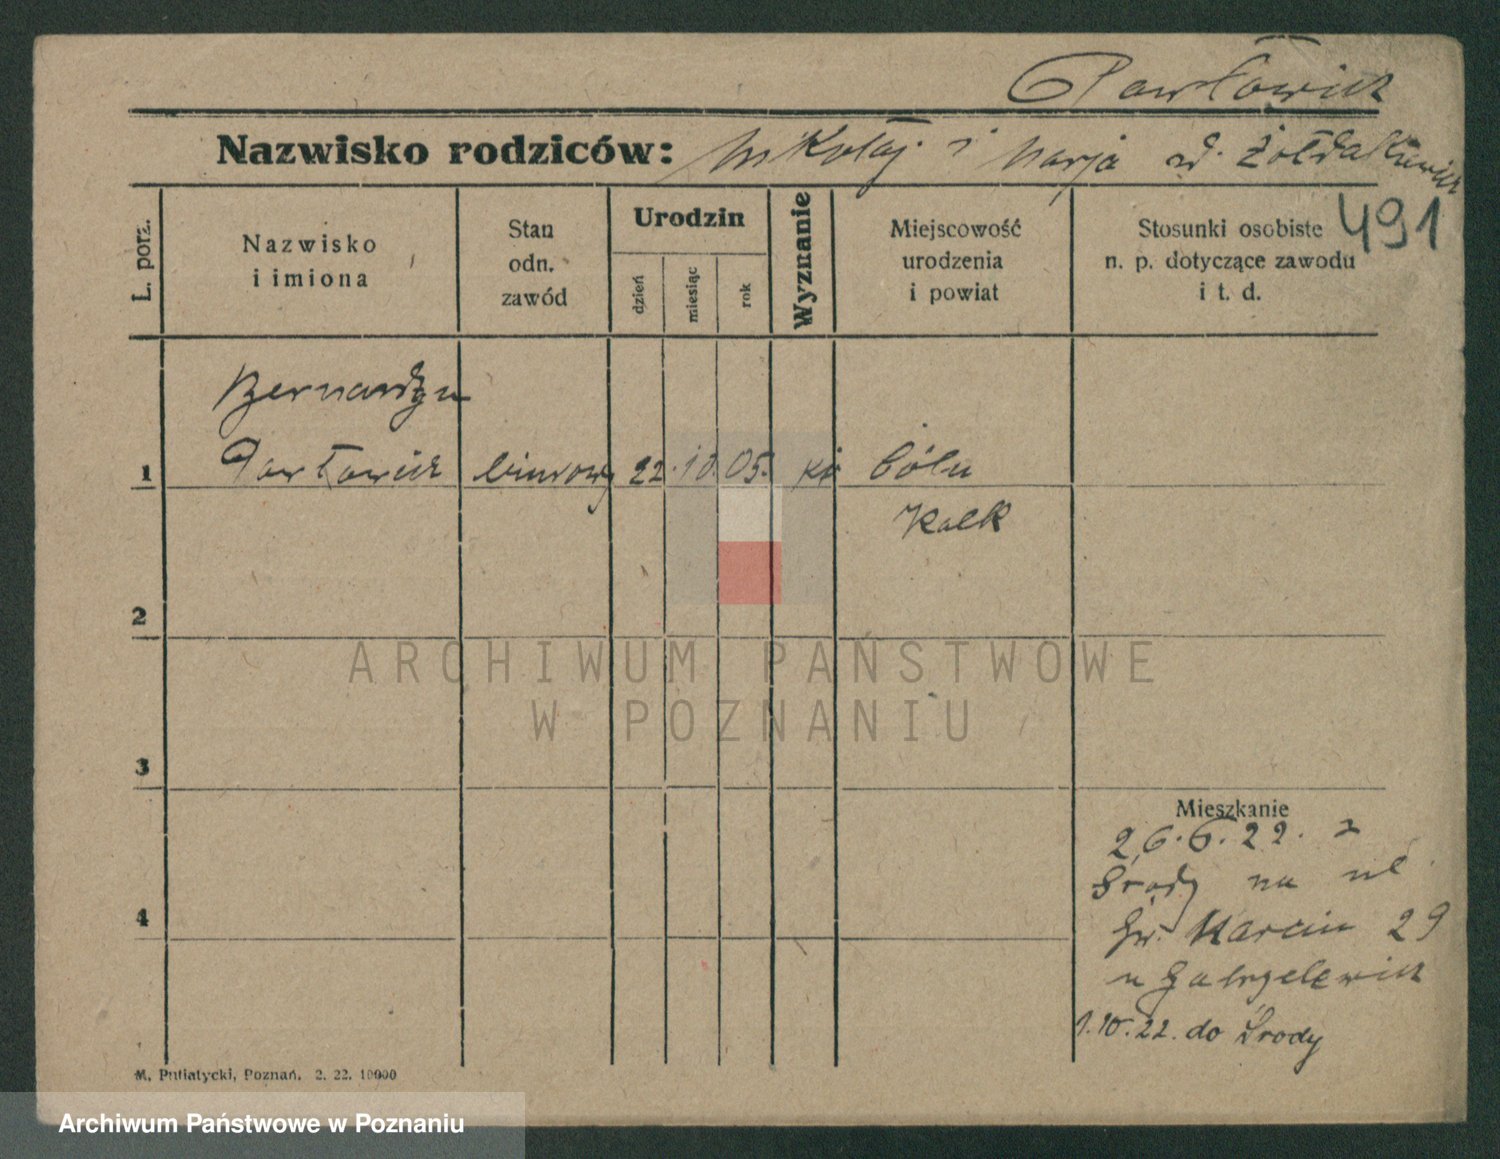 Pawłowicz
Nazwisko rodziców: Mikołaj i Marja
491
L. porz.
Nazwisko
i imiona
Stan
odn.
zawód
Urodzin
dzień
miesiąc
rok
Wyznanie
Miejscowość
urodzenia
i powiat
Stosunki osobiste
n. p. dotyczące zawodu
i t. d.
Bernardyn
1 Pawłowicz biurowy 22. 10. 05. kt Cöln
Kalk
2
ARCHIWUM PAŃSTWOWE
W POZNANIU
3
Mieszkanie
26.6.22. z
Środy na ul
4
Św. Marcin 29
1.10.22. do Środy
M. Putiatycki, Poznań. 2. 22. 10000
Archiwum Państwowe w Poznaniu